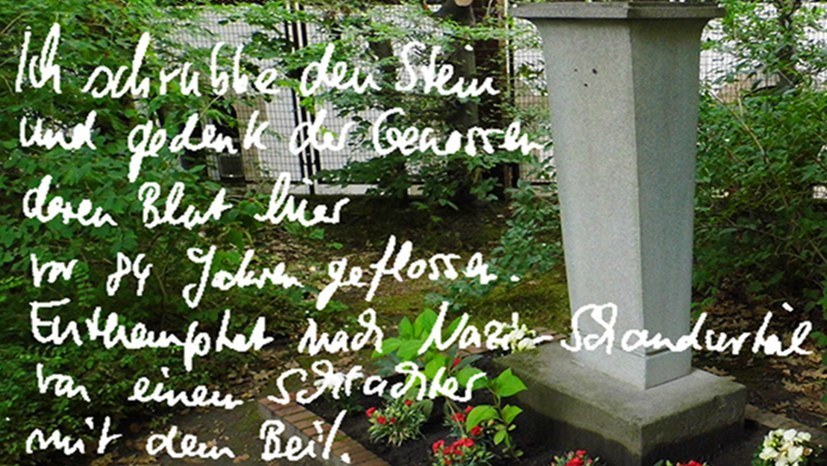 Ich schrubbe den Stein
und gedenk der Genossen
deren Blut hier
vor 84 Jahren geflossen.
Enthauptet nach Nazi-Schandurteil
von einem Schlachter
mit dem Beil.